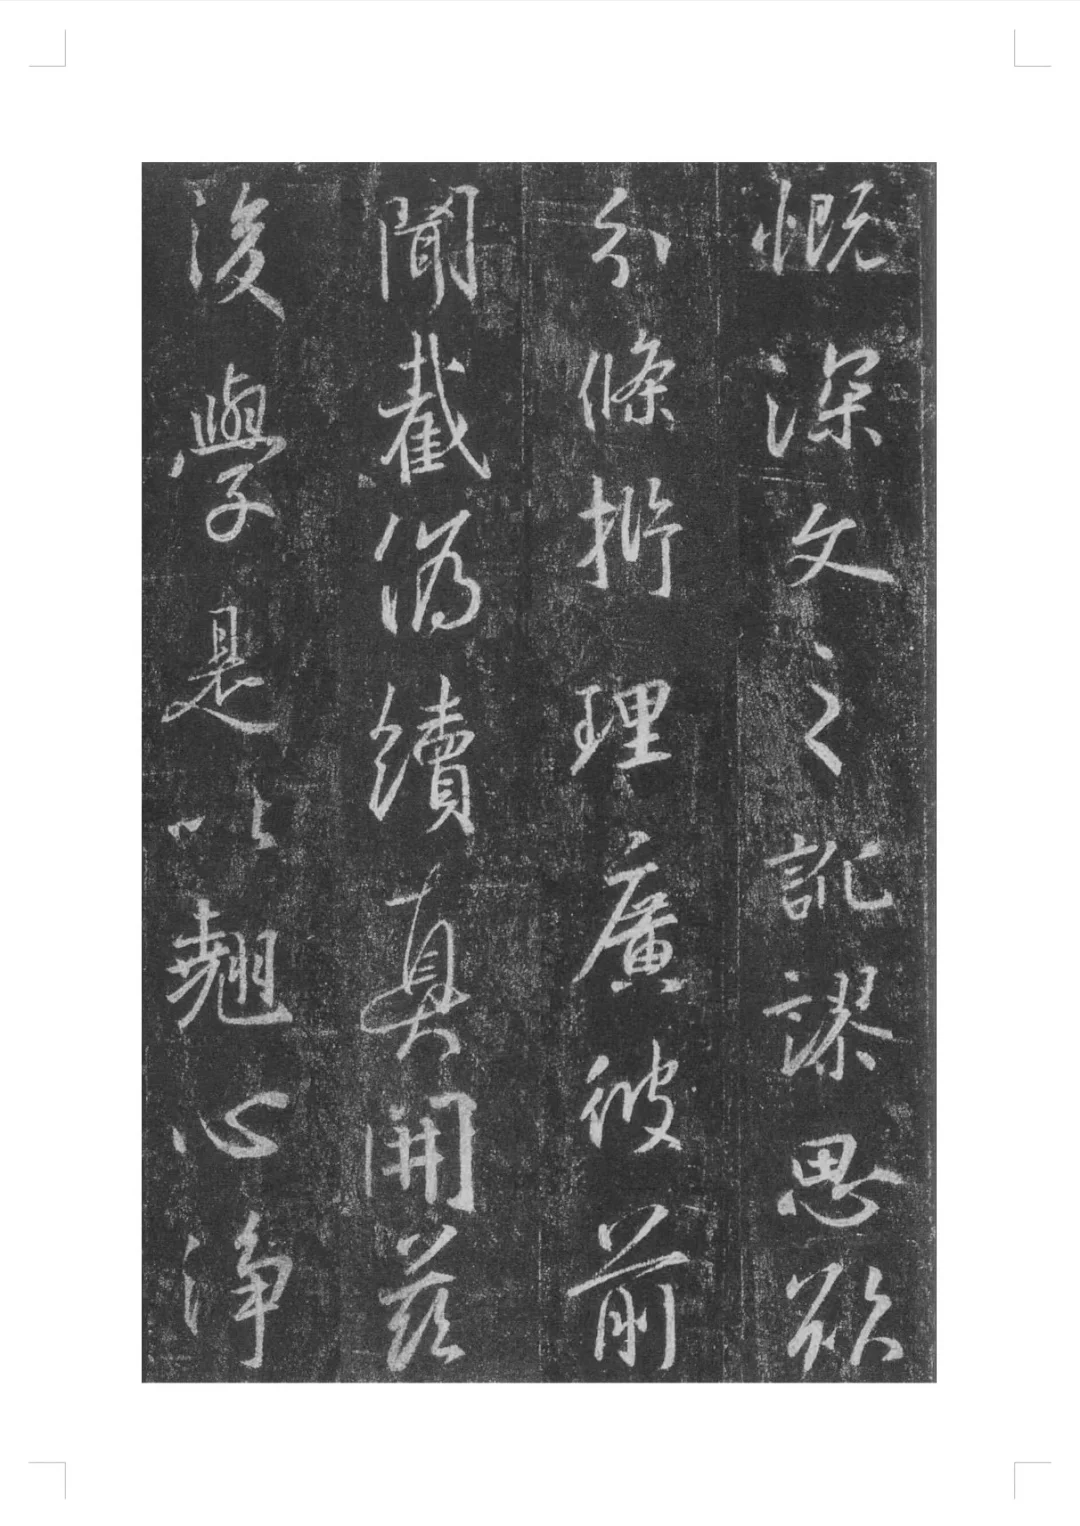 慨深文之訛謬思欲
分條析理廣彼前
聞截偽續真開茲
後學是以翹心淨